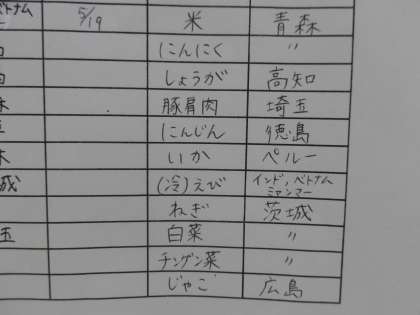 ベトナム 5/19 米 青森
にんにく 〃
しょうが 高知
豚肩肉 埼玉
にんじん 徳島
いか ペルー
城 (冷)えび インド,ベトナム
ミャンマー
ねぎ 茨城
玉 白菜 〃
チンゲン菜 〃
じゃこ 広島